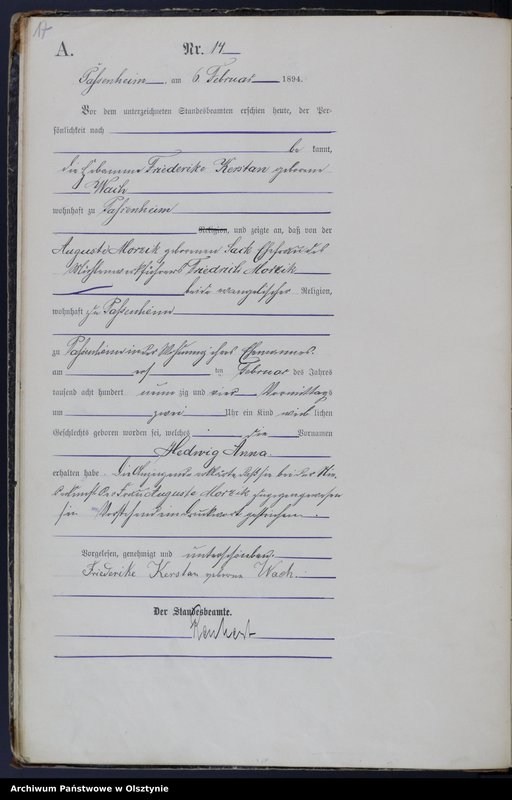 17
A.
Nr. 14
Passenheim, am 6. Februar 1894.
Vor dem unterzeichneten Standesbeamten erschien heute, der Per-
sönlichkeit nach
be kannt,
die Hebamme Friederike Kerstan geborene
Wach
wohnhaft zu Passenheim
Religion, und zeigte an, daß von der
Auguste Morzik geborenen Sack Ehefrau des
Mühlenwerkführers Friedrich Morzik
beide evangelischer Religion,
wohnhaft zu Passenheim
zu Passenheim in der Wohnung ihres Ehemannes
am ten Februar des Jahres
tausend acht hundert neun zig und vier Vormittags
um zwei Uhr ein Kind weib lichen
Geschlechts geboren worden sei, welches die Vornamen
Hedwig Anna
erhalten habe. Die Anzeigende erklärte, daß sie bei der Nie-
derkunft der Frau Auguste Morzik zugegen gewesen
sei. Vorstehend ein Druckwort gestrichen.
Vorgelesen, genehmigt und unterschrieben.
Friederike Kerstan geborene Wach.
Der Standesbeamte.
Archiwum Państwowe w Olsztynie